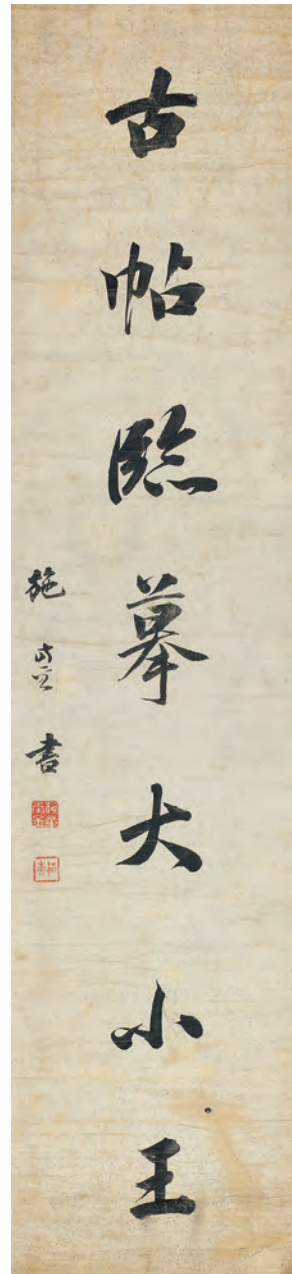 古帖臨摹大小王
施貞書